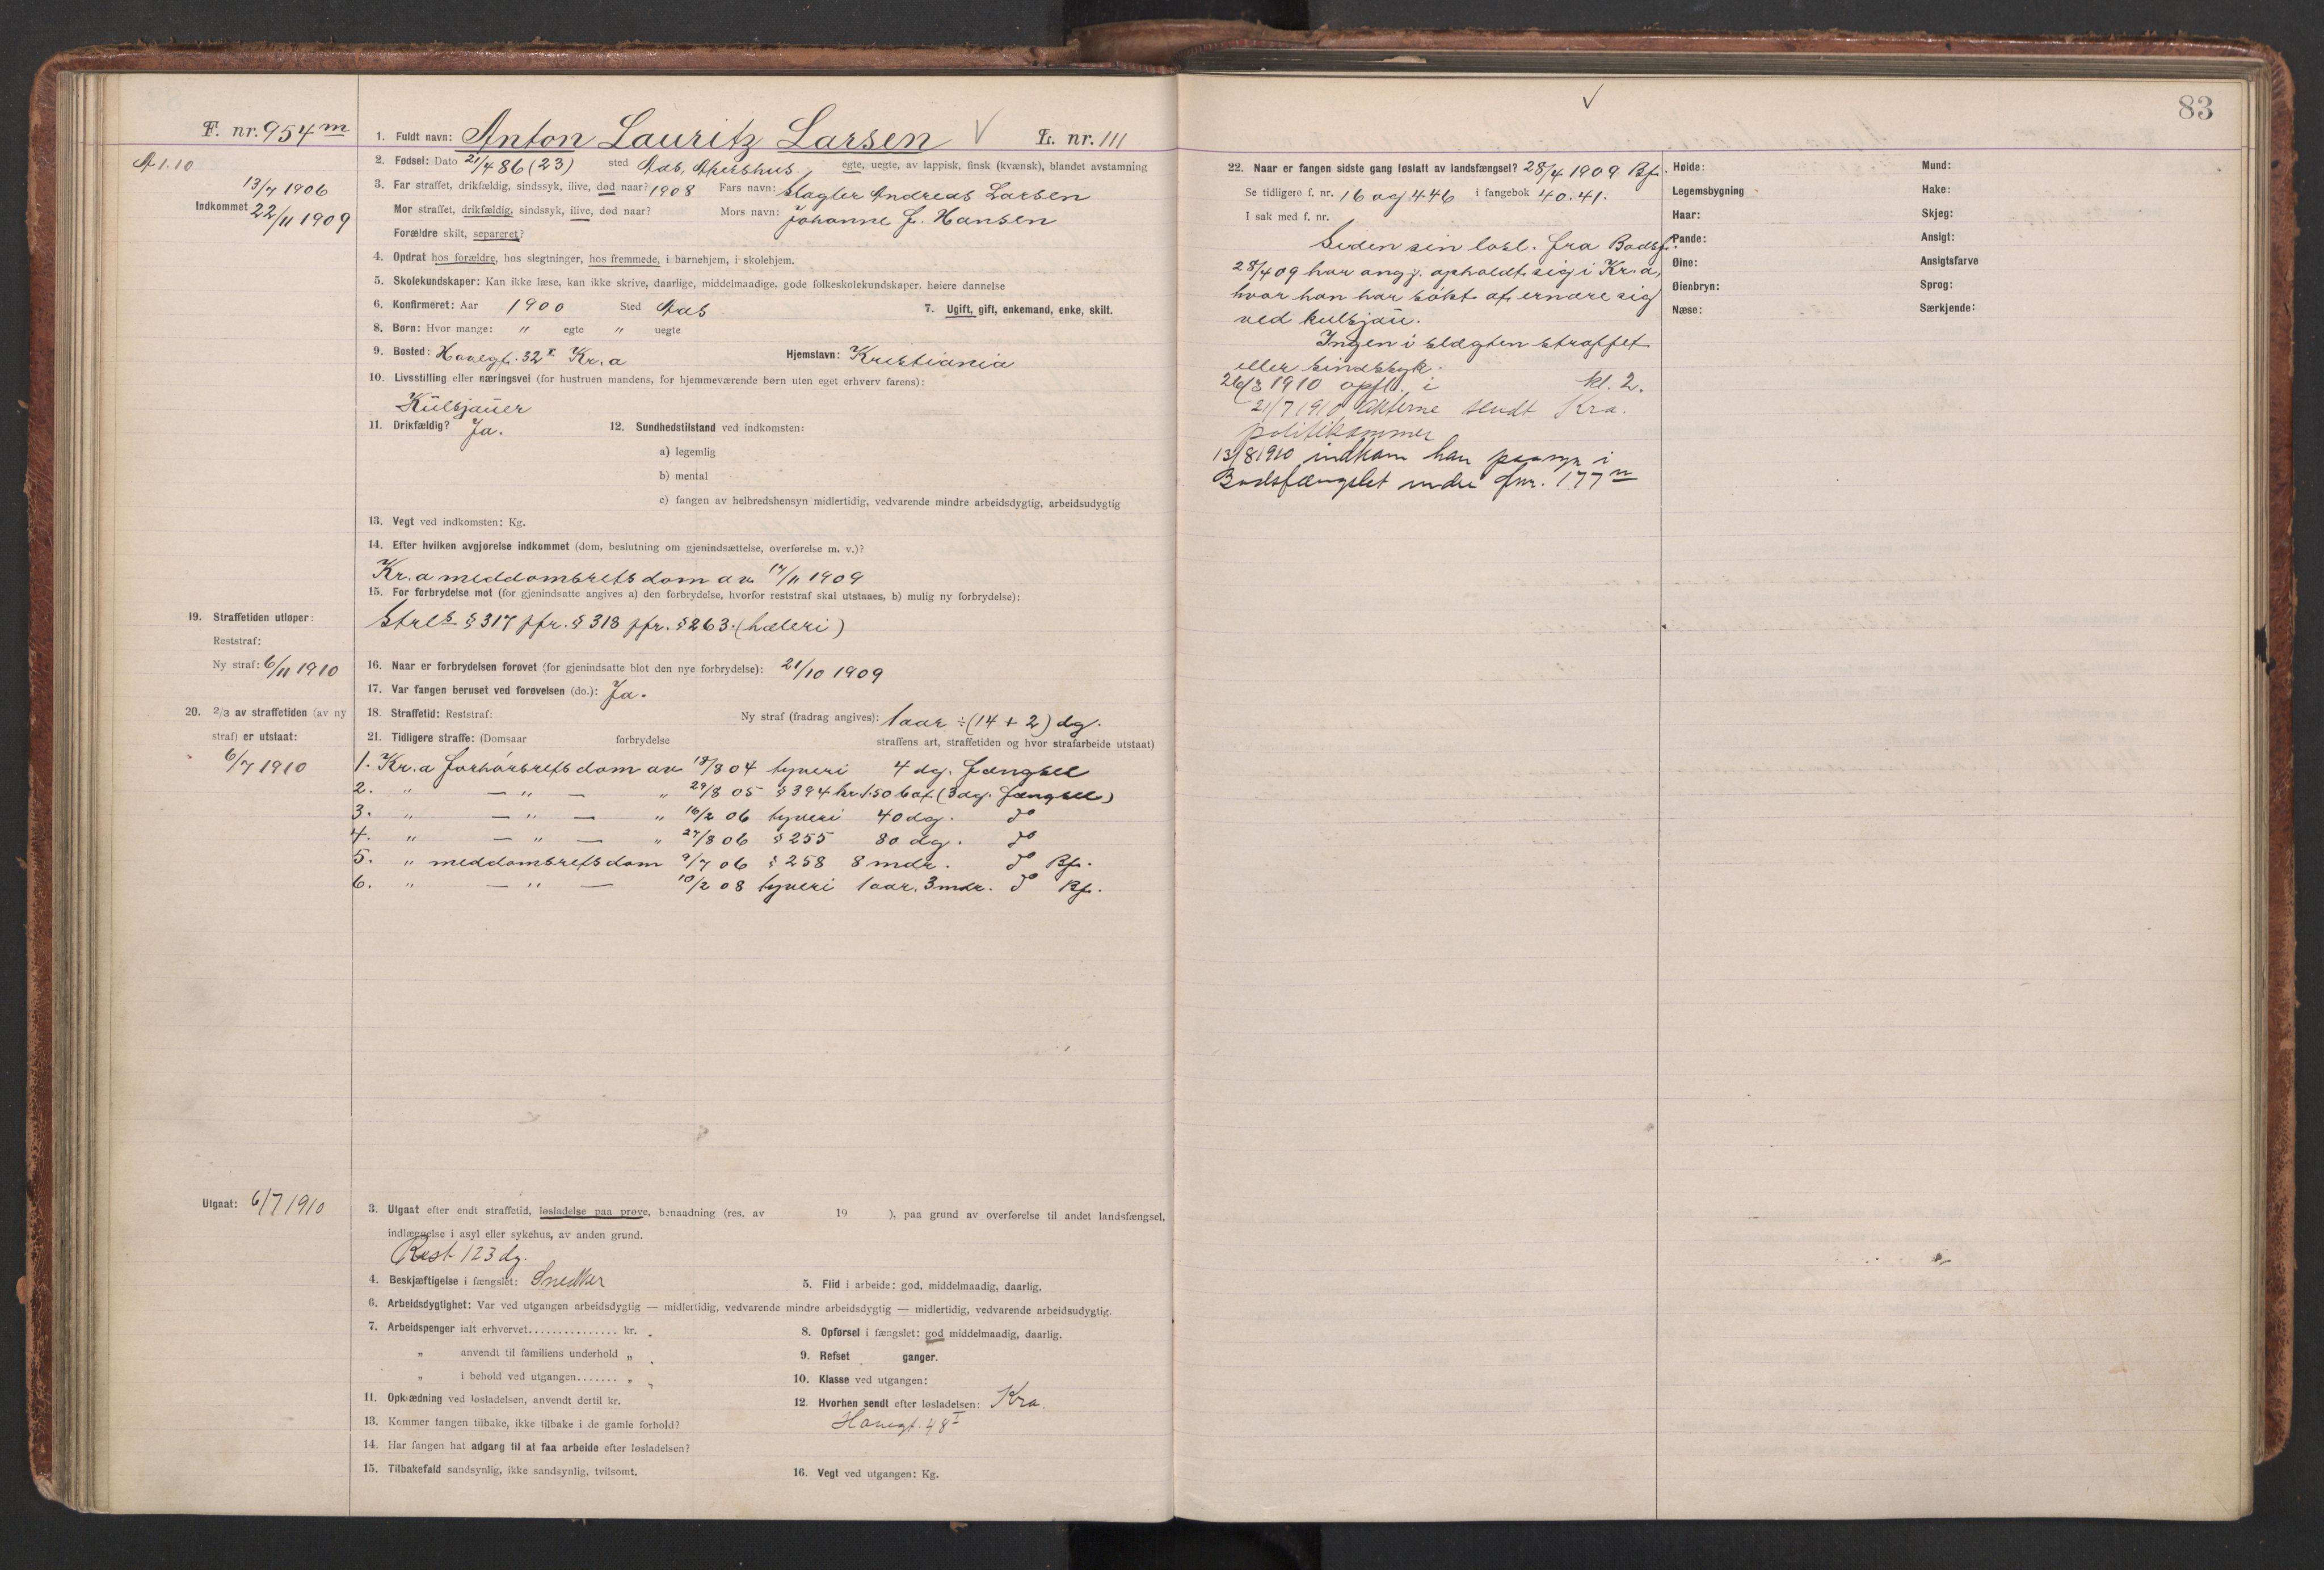 F. nr. 954 m
1. Fuldt navn: Anton Lauritz Larsen V L. nr. 111
A 1.10
2. Fødsel: Dato 21/4 86 (23) sted Aas, Akershus. egte, uegte, av lappisk, finsk (kvænsk), blandet avstamning
13/7 1906
Indkommet 22/11 1909
3. Far straffet, drikfældig, sindssyk, ilive, død naar? 1908 Fars navn: Slagter Andreas Larsen
Mor straffet, drikfældig, sindssyk, ilive, død naar? Mors navn: Johanne J. Hansen
Forældre skilt, separeret?
4. Opdrat hos forældre, hos slegtninger, hos fremmede, i barnehjem, i skolehjem.
5. Skolekundskaper: Kan ikke læse, kan ikke skrive, daarlige, middelmaadige, gode folkeskolekundskaper, høiere dannelse
6. Konfirmeret: Aar 1900 Sted Aas 7. Ugift, gift, enkemand, enke, skilt.
8. Børn: Hvor mange: " egte " uegte
9. Bosted: Havegt. 32 I Kr.a Hjemstavn: Kristiania
10. Livsstilling eller næringsvei (for hustruen mandens, for hjemmeværende børn uten eget erhverv farens):
Kulsjauer
11. Drikfældig? Ja. 12. Sundhedstilstand ved indkomsten:
a) legemlig
b) mental
c) fangen av helbredshensyn midlertidig, vedvarende mindre arbeidsdygtig, arbeidsudygtig
13. Vegt ved indkomsten: Kg.
14. Efter hvilken avgjørelse indkommet (dom, beslutning om gjenindsættelse, overførelse m. v.)?
Kr.a meddomsrets dom av 17/11 1909
15. For forbrydelse mot (for gjenindsatte angives a) den forbrydelse, hvorfor reststraf skal utstaaes, b) mulig ny forbrydelse):
Strls § 317 jfr. § 318 jfr. § 263. (hæleri)
19. Straffetiden utløper:
Reststraf:
Ny straf: 6/11 1910
16. Naar er forbrydelsen forøvet (for gjenindsatte blot den nye forbrydelse): 21/10 1909
17. Var fangen beruset ved forøvelsen (do.): Ja.
20. 2/3 av straffetiden (av ny straf) er utstaat:
6/7 1910
18. Straffetid: Reststraf: Ny straf (fradrag angives): 1 aar ÷ (14 + 2) dg.
21. Tidligere straffe: (Domsaar forbrydelse straffens art, straffetiden og hvor strafarbeide utstaat)
1. Kr.a forhørsrets dom av 18/8 04 tyveri 4 dg. fængsel
2. " — " — " 29/8 05 § 394 kr. 1.50 bøt (3 dg. fængsel)
3. " — " — " 16/2 06 tyveri 40 dg. do
4. " — " — " 27/8 06 § 255 80 dg. do
5. " meddomsrets dom 9/7 06 § 258 8 mdr. do Bf.
6. " — " — 10/2 08 tyveri 1 aar. 3 mdr. do Bf.
Utgaat: 6/7 1910
3. Utgaat efter endt straffetid, løsladelse paa prøve, benaadning (res. av 19 ), paa grund av overførelse til andet landsfængsel,
indlæggelse i asyl eller sykehus, av anden grund.
Rest 123 dg.
4. Beskjæftigelse i fængslet: Snedker 5. Flid i arbeide: god, middelmaadig, daarlig.
6. Arbeidsdygtighet: Var ved utgangen arbeidsdygtig — midlertidig, vedvarende mindre arbeidsdygtig — midlertidig, vedvarende arbeidsudygtig.
7. Arbeidspenger ialt erhvervet............... kr. 8. Opførsel i fængslet: god middelmaadig, daarlig.
" anvendt til familiens underhold " 9. Refset ganger.
" i behold ved utgangen....... " 10. Klasse ved utgangen:
11. Opklædning ved løsladelsen, anvendt dertil kr. 12. Hvorhen sendt efter løsladelsen: Kra.
13. Kommer fangen tilbake, ikke tilbake i de gamle forhold? Havegt. 48 I
14. Har fangen hat adgang til at faa arbeide efter løsladelsen?
15. Tilbakefald sandsynlig, ikke sandsynlig, tvilsomt. 16. Vegt ved utgangen: Kg.
V
83
22. Naar er fangen sidste gang løslatt av landsfængsel? 28/4 1909 Bf.
Se tidligere f. nr. 16 og 446 i fangebok 40. 41.
I sak med f. nr.
Siden sin løsl. fra Bodsf.
28/4 09 har angj. opholdt sig i Kr.a,
hvor han har søkt at ernære sig
ved kulsjau.
Ingen i slægten straffet
eller sindssyk.
26/3 1910 opfl. i kl. 2.
21/7 1910 Akterne sendt Kra.
politikammer
13/8 1910 indkom han paany i
Bodsfængslet under fnr. 177 n
Høide: Mund:
Legemsbygning Hake:
Haar: Skjeg:
Pande: Ansigt:
Øine: Ansigtsfarve
Øienbryn: Sprog:
Næse: Særkjende: